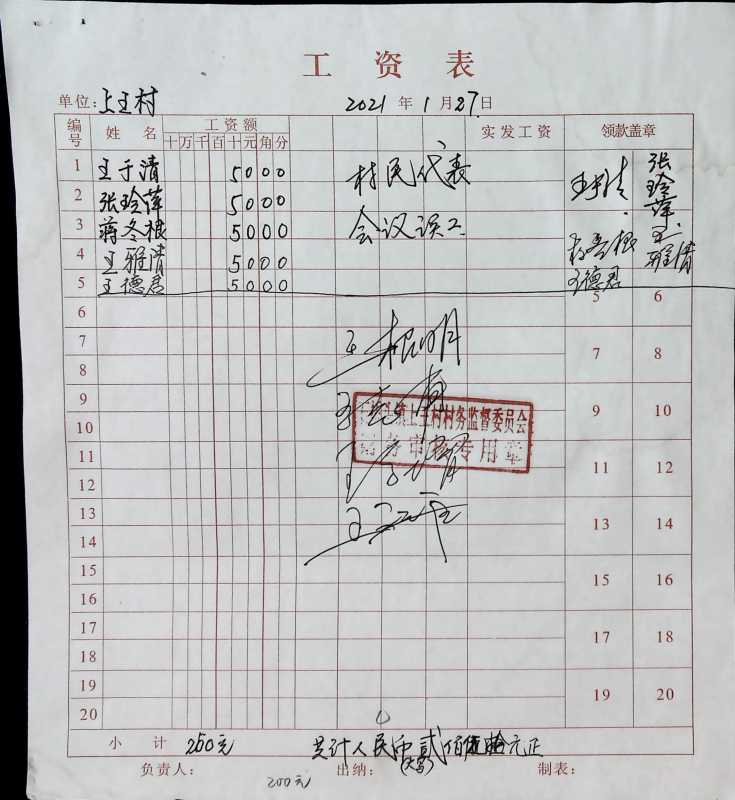 工资表
单位: 上王村 2021年1月27日
编号 姓名 工资额 实发工资 领款盖章
十 万 千 百 十 元 角 分
1 王于清 5000 村民代表 张玲萍
2 张玲萍 5000
3 蒋冬根 5000 会议误工
4 王雅清 5000 王雅清
5 王德君 5000 王德君 5 6
6
7 王根明 7 8
8
9 9 10
镇上王村村务监督委员会
10
财务审核专用章
11 11 12
12
13 13 14
14
15 15 16
16
17 17 18
18
19 19 20
20
小计 250元 总计人民币贰佰伍拾元正
(大写)
负责人: 出纳: 制表:
200元